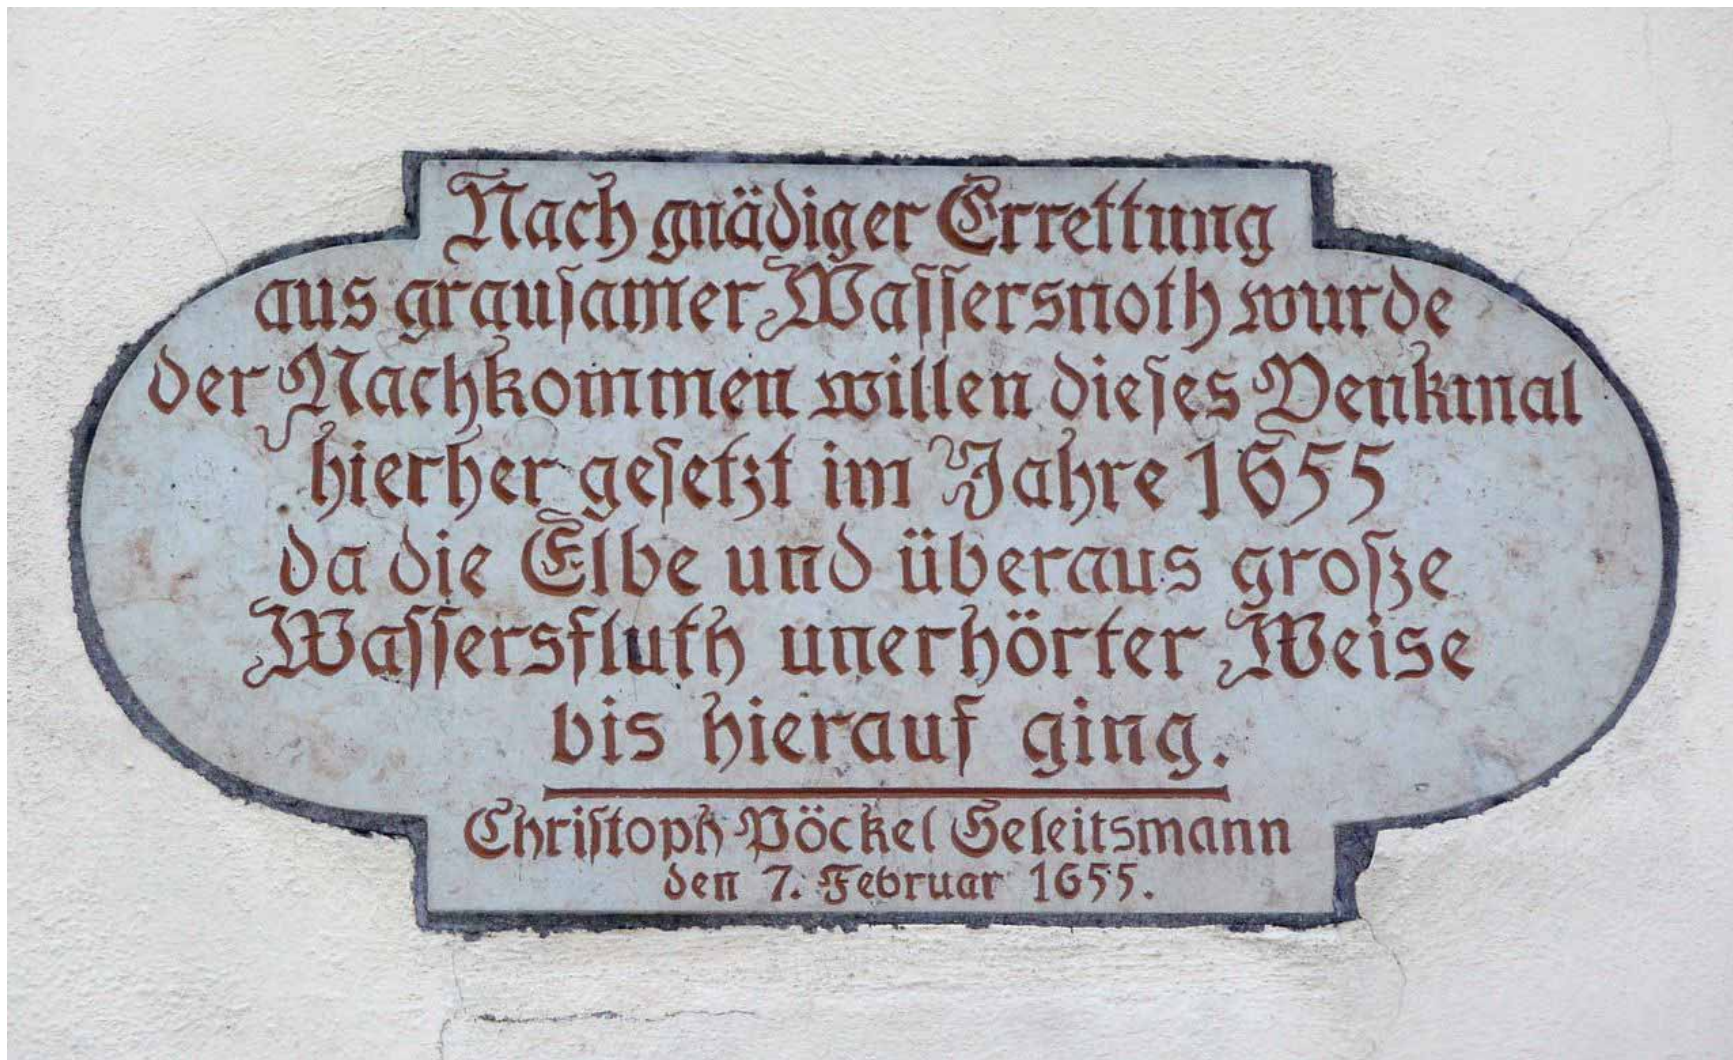 Nach gnädiger Errettung
aus grausamer Wassersnoth wurde
der Nachkommen willen dieses Denkmal
hierher gesetzt im Jahre 1655
da die Elbe und überaus große
Wassersfluth unerhörter Weise
bis hierauf ging.
Christoph Pöckel Geleitsmann
den 7. Februar 1655.